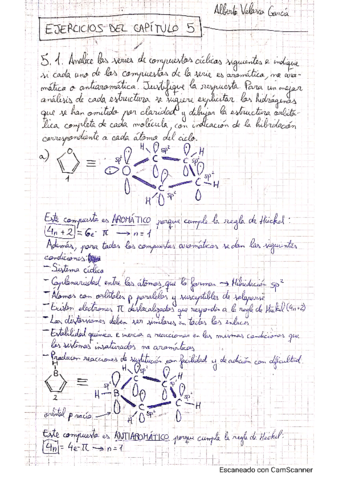 Alberto Velasco García
EJERCICIOS DEL CAPÍTULO 5
5.1. Analice las series de compuestos cíclicos siguientes e indique
si cada uno de los compuestos de la serie es aromático, no aro-
mático o antiaromático. Justifique la respuesta. Para un mejor
análisis de cada estructura se sugiere explicitar los hidrógenos
que se han omitido por claridad y dibujar la estructura orbita-
lica completa de cada molécula, con indicación de la hibridación
correspondiente a cada átomo del ciclo.
a) O ≡ sp² H C sp² C H sp²
O C C
1 H sp² H
Este compuesto es AROMÁTICO porque cumple la regla de Hückel:
4n+2 = 6e⁻ π → n=1
Además, para todos los compuestos aromáticos se dan las siguientes
condiciones:
- Sistema cíclico
- Coplanaridad entre los átomos que lo forman → Hibridación sp²
- Átomos con orbitales p paralelos y susceptibles de solaparse
- Existen electrones π deslocalizados que responden a la regla de Hückel (4n+2)
- Las distorsiones deben ser similares en todos los enlaces
- Estabilidad química e inercia a reacciones en las mismas condiciones que
los sistemas insaturados no aromáticos
- Producen reacciones de sustitución con facilidad y de adición con dificultad.
H B ≡ sp² H C sp² C H
H B C
2 C H
orbital p vacío
Este compuesto es ANTIAROMÁTICO porque cumple la regla de Hückel:
4n = 4e⁻ π → n=1
Escaneado con CamScanner